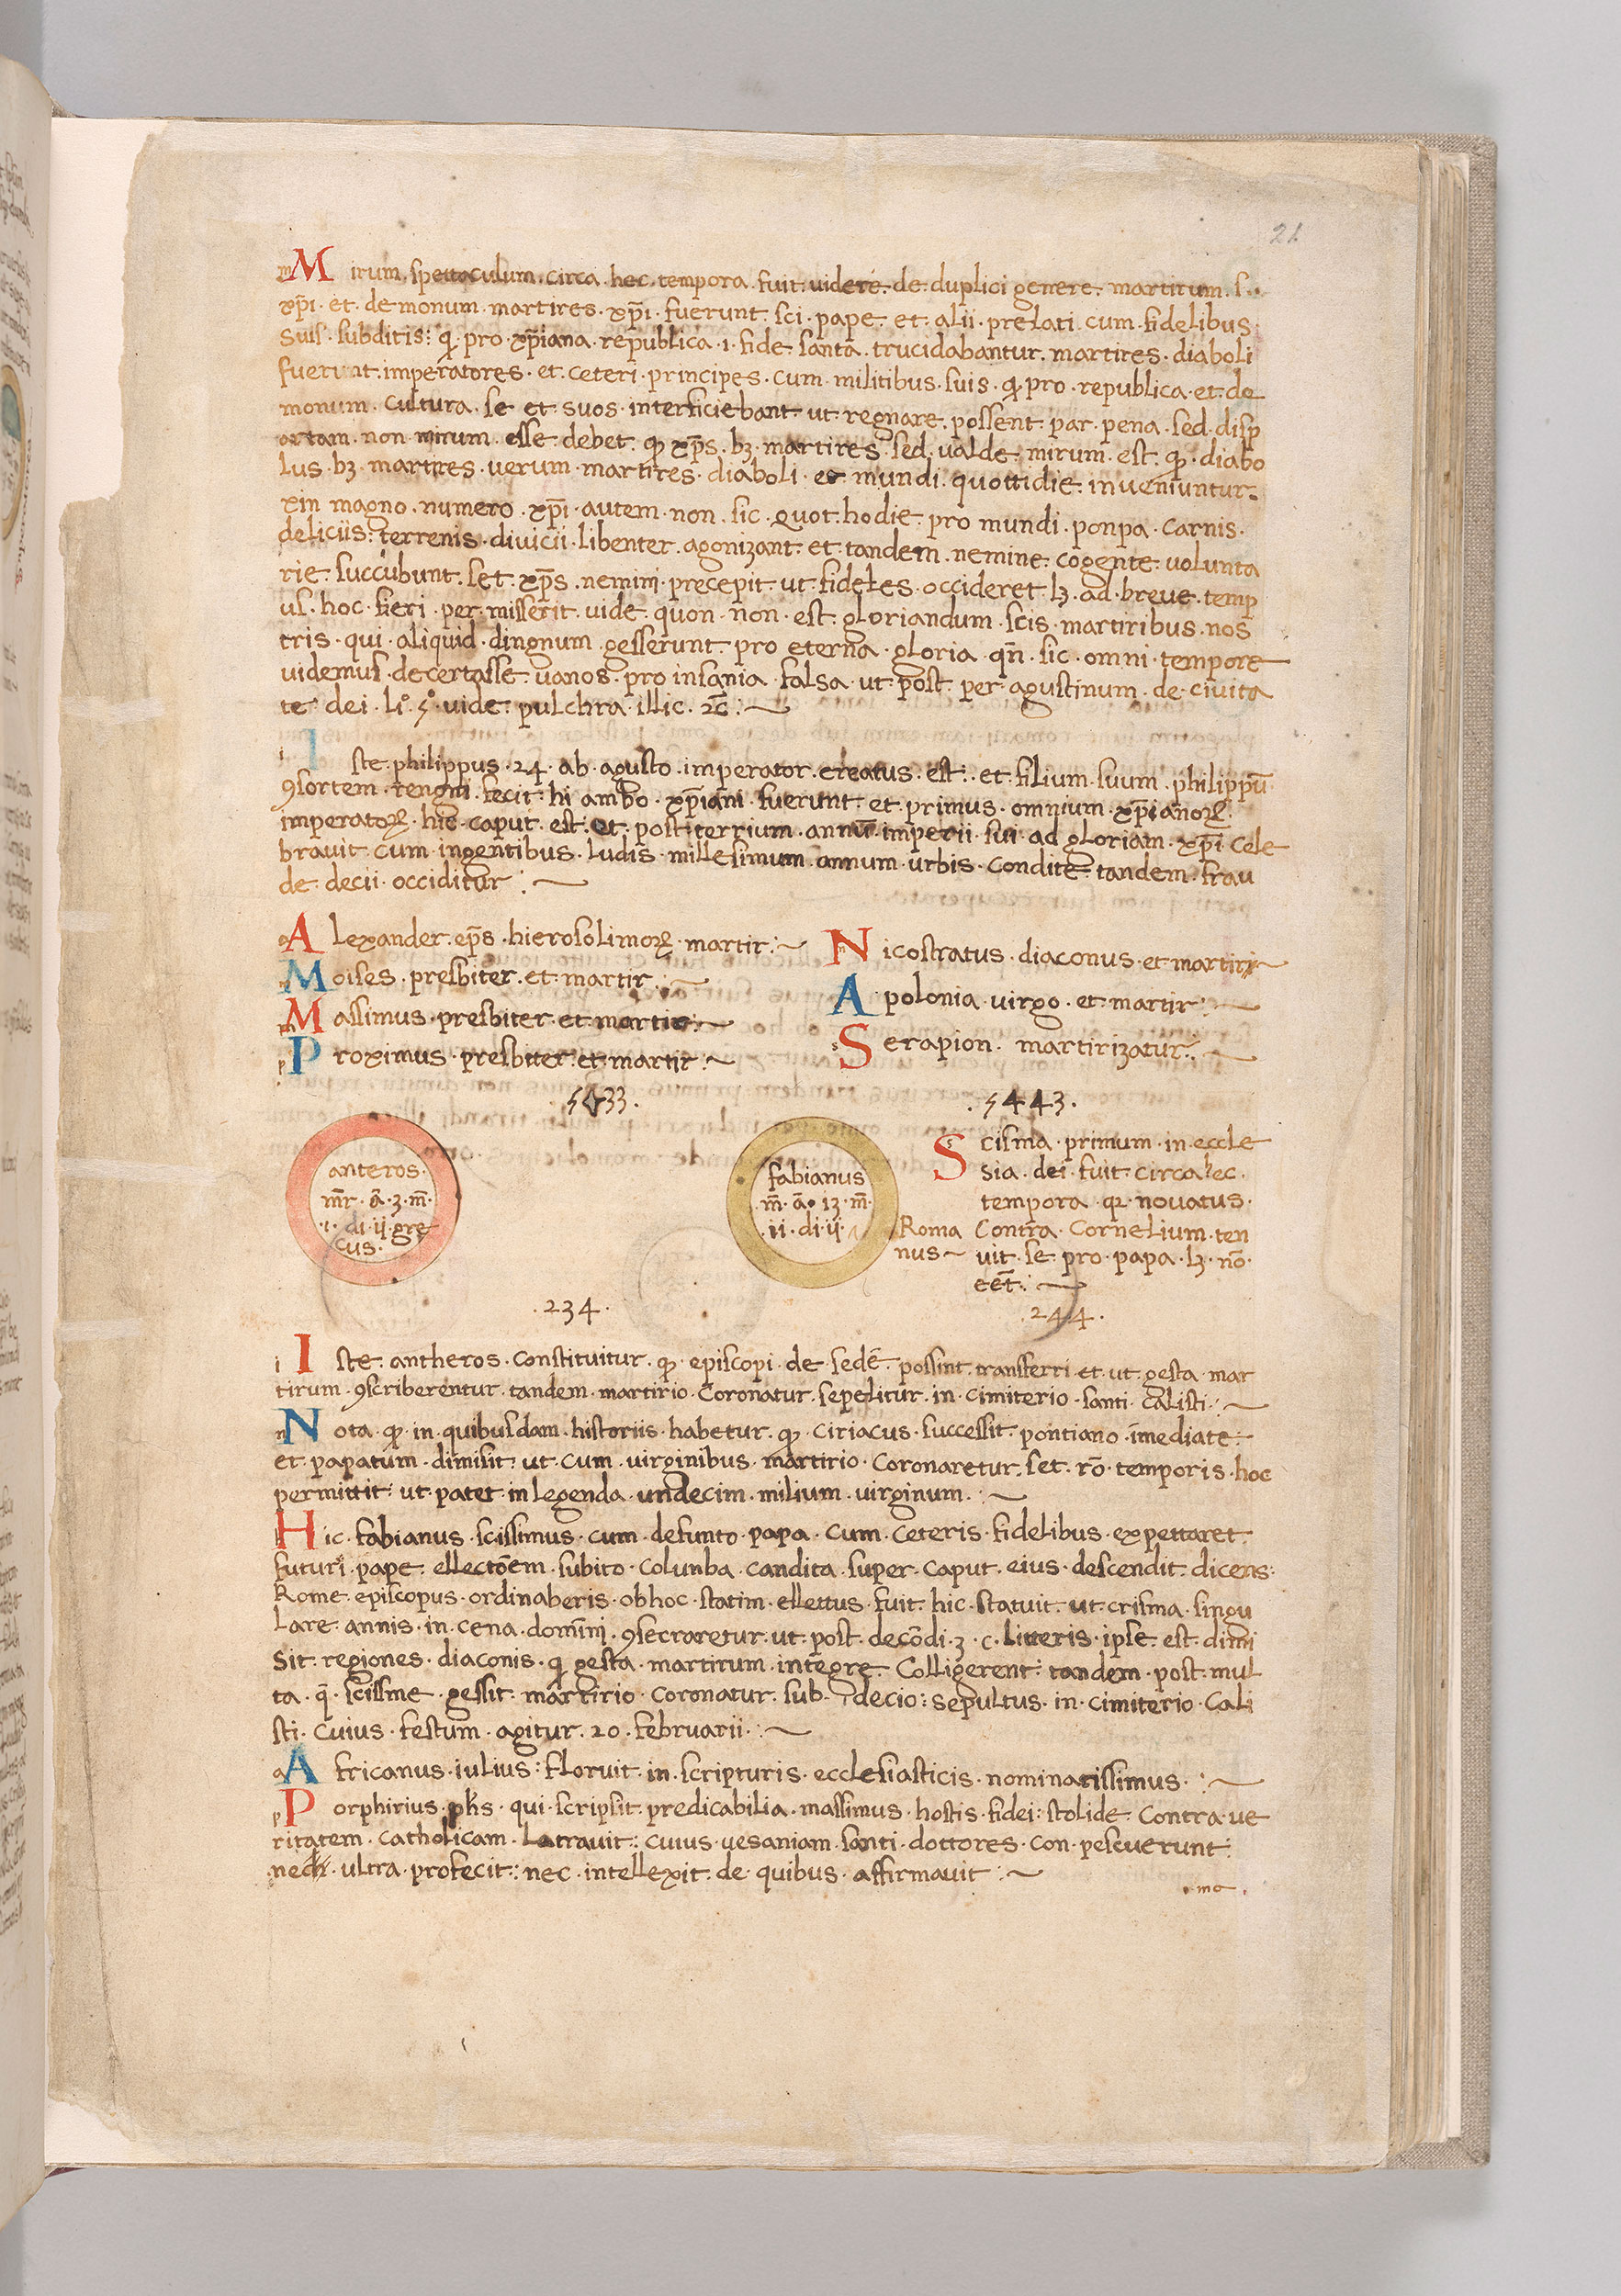 21
M irum. spettaculum. circa. hec. tempora. fuit. uidere. de. duplici genere. martirum. s..
xp̄i. et. demonum. martires. xp̄i. fuerunt. sci. pape. et. alii. prelati. cum. fidelibus
suis. subditis: q̇. pro. xp̄iana. republica. i. fide. santa. trucidabantur. martires. diaboli
fuerunt. imperatores. et. ceteri. principes. cum. militibus. suis. q̇. pro. republica. et. de
monum. cultura. se. et. suos. interficiebant. ut. regnare. possent. par. pena. sed. disp
ar tam. non mirum. esse. debet. qꝫ. xp̄s. hꝫ. martires. sed. ualde. mirum. est. qꝫ. diabo
lus. hꝫ. martires. uerum. martires. diaboli. et. mundi. quottidie. inueniuntur.
in magno. numero. xp̄i. autem. non. sic. quot. hodie. pro mundi. ponpa. carnis.
deliciis. terrenis. diuicii. libenter. agonizant. et. tandem. nemine. cogente. uolunta
rie. succubunt. set. xp̄s. nemini. precepit. ut. fideles. occideret. lꝫ. ad. breue. temp
us. hoc. fieri. per. misserit. uide. quon. non. est. gloriandum. scis. martiribus. nos
tris. qui. aliquid. dingnum. gesserunt. pro eterna. gloria. qn̄. sic. omni. tempore
uidemus. decertasse. uanos. pro insania. falsa. ut. post. per. agustinum. de. ciuita
te. dei. li°. 5°. uide. pulchra. illic. ⁊c̄. :~
I ste. philippus. 24. ab. agusto. imperator. creatus. est. et. filium. suum. philippū
ꝯsortem. rengni. fecit. hi ambo. xp̄iani. fuerunt. et primus. omnium. xp̄ianoꝝ
imperatoꝝ. hic. caput. est. et. post. terrium. annū. imperii. sui. ad gloriam. xp̄i. cele
brauit. cum. ingentibus. ludis. millesimum. annum. urbis. condite. tandem. frau
de. decii. occiditur :~
A lexander. ep̄s. hierosolimoꝝ. martir :~
M oises. presbiter. et. martir. :~
M assimus. presbiter. et. martir. :~
P roximus. presbiter. et. martir. :~
N icostratus. diaconus. et. martir :~
A polonia. uirgo. et. martir :~
S erapion. martirizatur. :~
.5433.
.5443.
anteros.
m̄r. ā. 3. m̄.
.i. di. ij. gre
cus.
fabianus
m̄. ā. 13. m̄.
.ii. di. ij.
Roma
nus~
S cisma. primum. in. eccle
sia. dei. fuit. circa hec.
tempora. qꝫ. nouatus.
contra. cornelium. ten
uit. se. pro. papa. lꝫ. nō.
eēt. :~
.234.
.244.
I ste. antheros. constituitur. qꝫ. episcopi. de. sede. possint. transferri. et. ut. gesta. mar
tirum. ꝯscriberentur. tandem. martirio. coronatur. sepelitur. in. cimiterio. santi. calisti. :~
N ota. qꝫ. in. quibusdam. historiis. habetur. qꝫ. ciriacus. successit. pontiano. īmediate.
et. papatum. dimisit. ut. cum. uirginibus. martirio. coronaretur. set. rō. temporis. hoc
permittit. ut. patet. in legenda. undecim. milium. uirginum. :~
H ic. fabianus. scissimus. cum. defunto. papa. cum. ceteris. fidelibus. expettaret.
futuri. pape. ellectōem. subito. colunba. candita. super. caput. eius. descendit. dicens.
Rome. episcopus. ordinaberis. ob hoc. statim. ellettus. fuit. hic. statuit. ut. crisma. singu
lare. annis. in. cena. domini. ꝯsecraretur. ut. post. decōdi. 3. c. litteris. ipse. est. dimi
sit. regiones. diaconis. q̇. gesta. martirum. integre. colligerent. tandem. post. mul
ta. q̄. scissme. gessit. martirio. coronatur. sub. decio: sepultus. in. cimiterio. cali
sti. cuius. festum. agitur. 20. februarii. :~
A fricanus. iulius: floruit. in. scripturis. ecclesiasticis. nominatissimus. :~
P orphirius. ph̄s. qui. scripsit. predicabilia. massimus. hostis. fidei: stolide. contra. ue
ritatem. catholicam. latrauit: cuius. uesaniam. santi. dottores. con. pescuerunt.
nec. ultra. profecit: nec. intellexit. de. quibus. affirmauit :~
.ma.